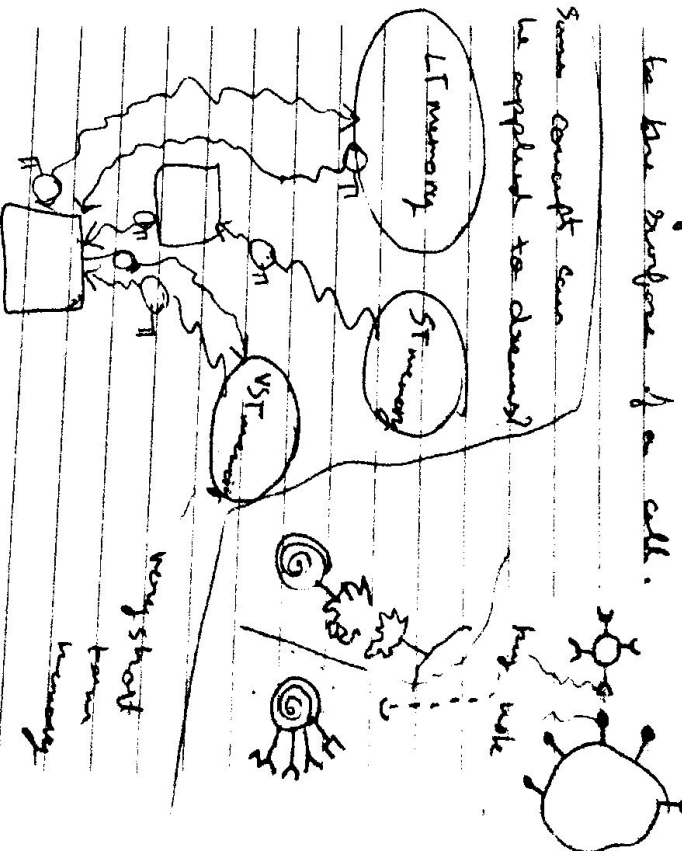 to the surface of a cell.
Same concept can
be applied to dreams?
LT memory
ST memory
VST memory
key
hole
very short
term
memory